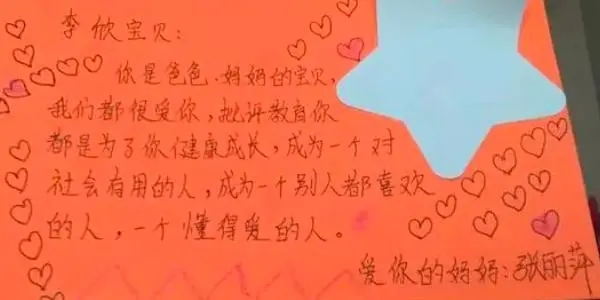 李欣宝贝：
你是爸爸、妈妈的宝贝，
我们都很爱你，批评教育你
都是为了你健康成长，成为一个对
社会有用的人，成为一个别人都喜欢
的人，一个懂得爱的人。
爱你的妈妈：张丽萍